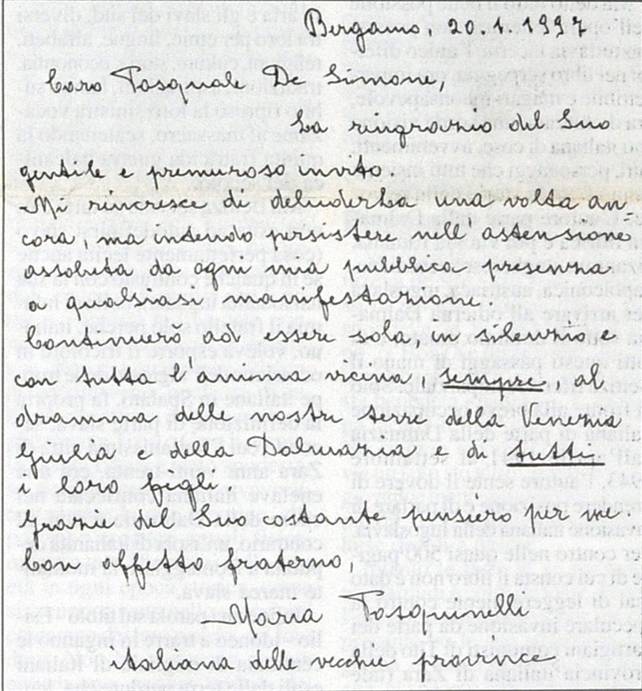 Bergamo, 20.1.1997
Caro Pasquale De Simone,
La ringrazio del Suo
gentile e premuroso invito.
Mi rincresce di deluderLa una volta an-
cora, ma intendo persistere nell'astensione
assoluta da ogni mia pubblica presenza
a qualsiasi manifestazione.
Continuerò ad essere sola, in silenzio e
con tutta l'anima vicina sempre al
dramma delle nostre terre della Venezia
Giulia e della Dalmazia e di tutti
i loro figli.
Grazie del Suo costante pensiero per me
Con affetto fraterno,
Maria Pasquinelli
italiana delle vecchie province